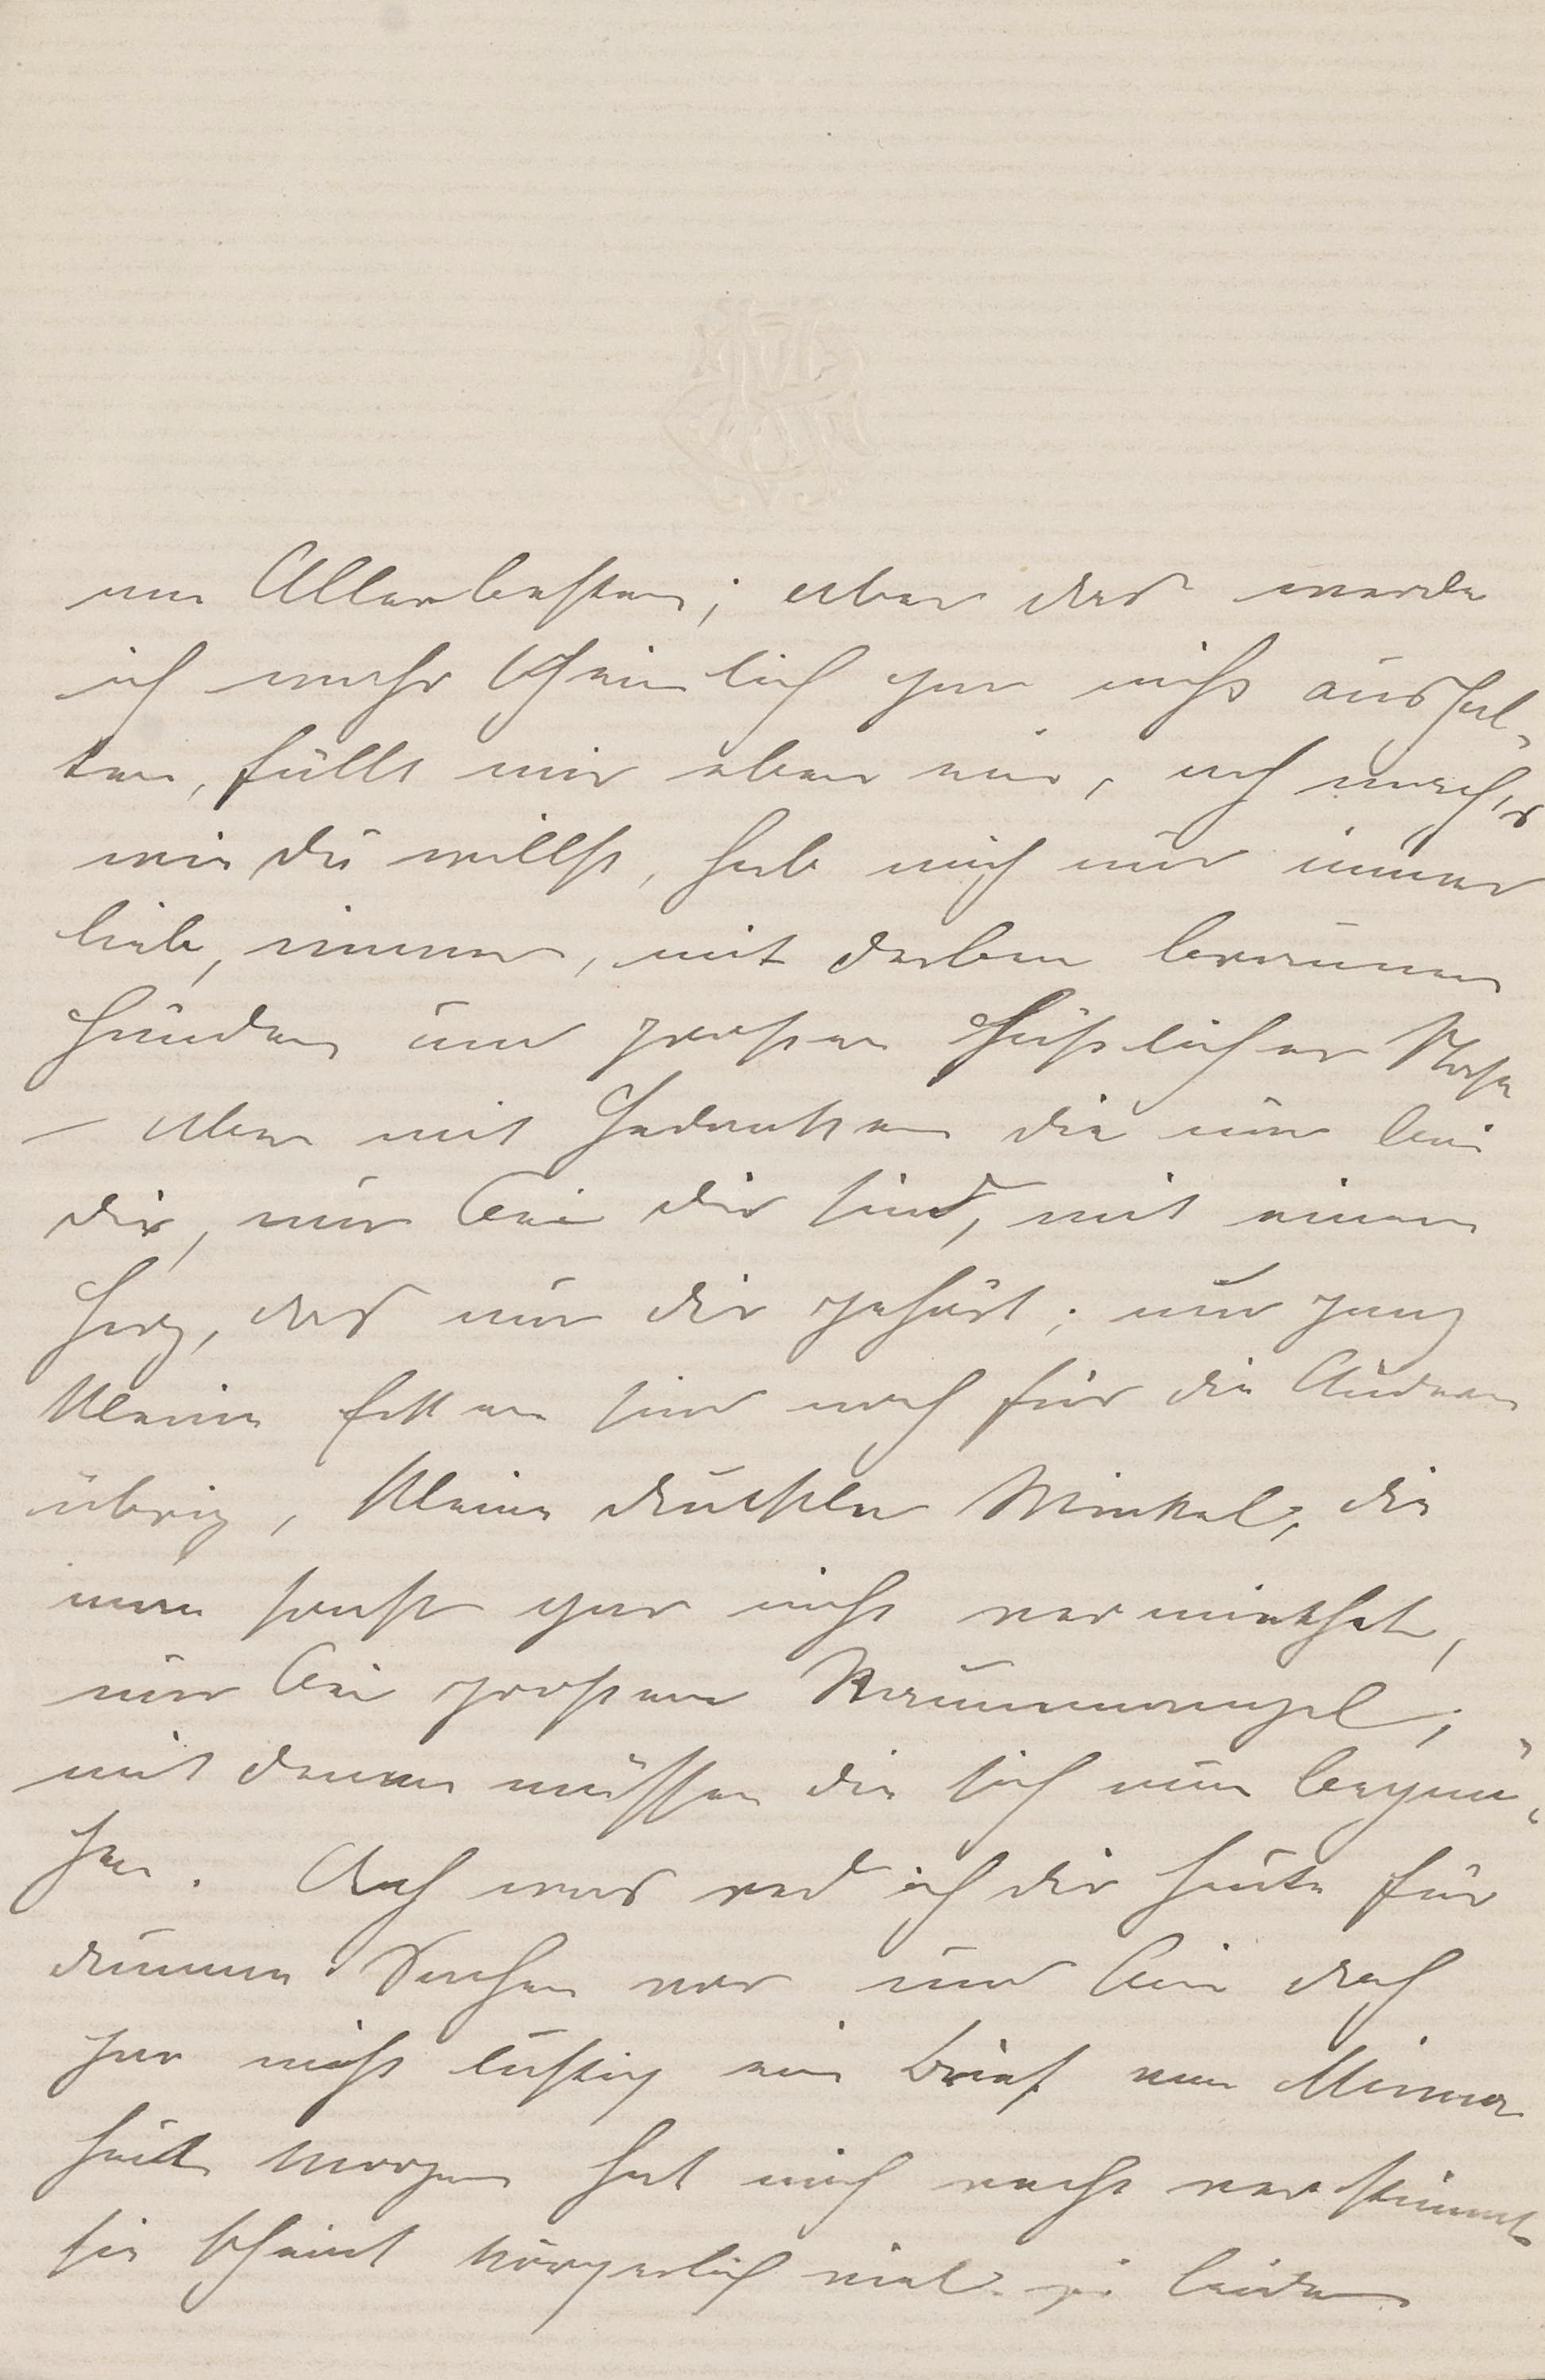 am Allerbesten; aber das werde
ich wahrscheinlich gar nicht aushal-
ten, fällt mir eben ein, ach mach's
wie du willst, hab mich nur immer
lieb, immer, mit derben braunen
Händen und großer häßlicher Nase
– aber mit Gedanken die nur bei
dir, nur bei dir sind, mit einem
Herz, das nur dir gehört; nur ganz
kleine Ecken sind noch für die Andern
übrig, kleine dunkle Winkel, die
man sonst gar nicht vermiethet,
nur bei großem Raummangel;
mit denen müssen die sich nun begnü-
gen. Ach was red ich dir heute für
dumme Sachen vor und bin doch
gar nicht lustig ein Brief von Minna
heute Morgen hat mich recht verstimmt
sie scheint körperlich viel zu leiden